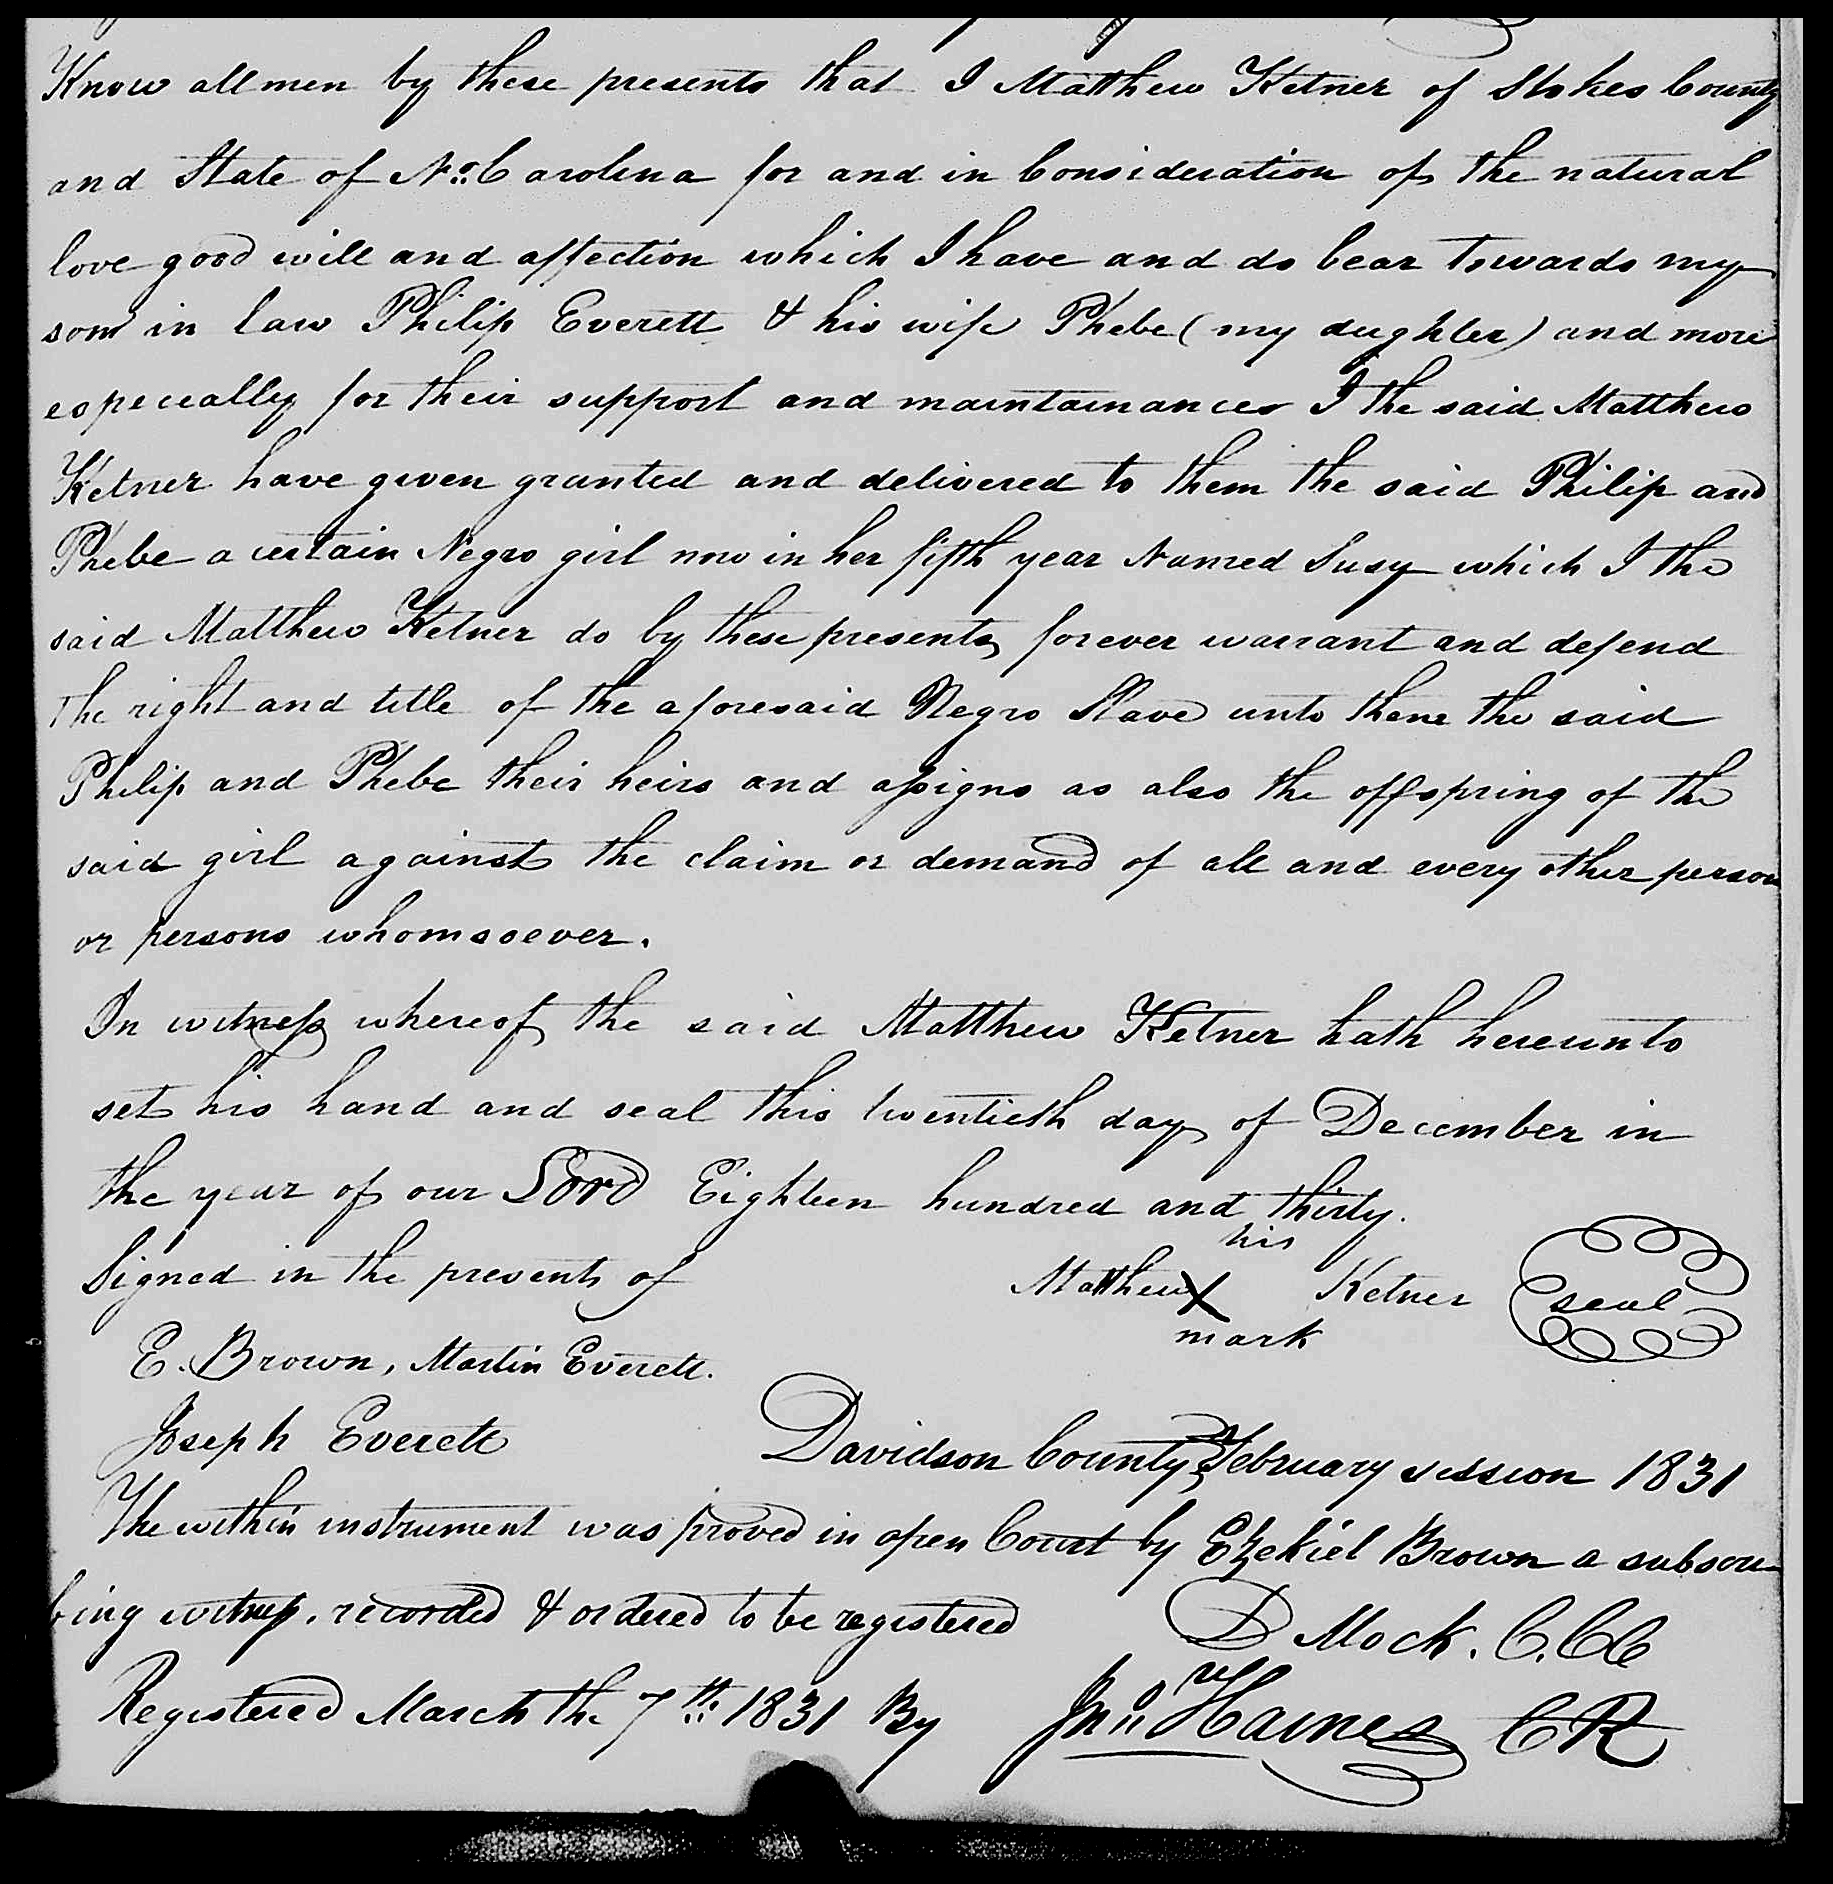 Know all men by these presents that I Matthew Ketner of Stokes County
and State of No. Carolina for and in Consideration of the natural
love good will and affection which I have and do bear towards my
son in law Philip Everett & his wife Phebe (my dughter) and more
especially for their support and maintainances I the said Matthew
Ketner have given granted and delivered to them the said Philip and
Phebe a certain Negro girl now in her fifth year Named Susy which I the
said Matthew Ketner do by these presents forever warrant and defend
the right and title of the aforesaid Negro Slave unto them the said
Philip and Phebe their heirs and assigns as also the offspring of the
said girl against the claim or demand of all and every other person
or persons whomsoever.
In witness whereof the said Matthew Ketner hath hereunto
set his hand and seal this twentieth day of December in
the year of our Lord Eighteen hundred and thirty.
his
Signed in the presents of Matthew X Ketner seal
mark
E. Brown, Martin Everett.
Joseph Everett Davidson County February session 1831
The within instrument was proved in open Court by Ezekiel Brown a subscri
bing witness, recorded & ordered to be registered
D Mock. C.CC
Registered March the 7th 1831 By Jno Haines CR